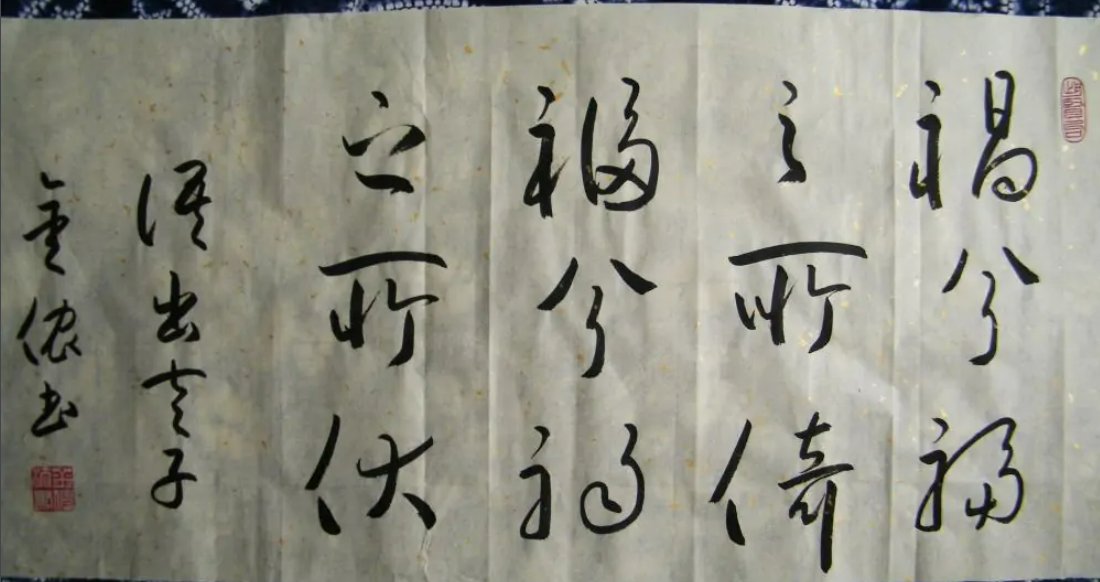 祸兮福
之所倚
福兮祸
之所伏
语出老子
金侬书